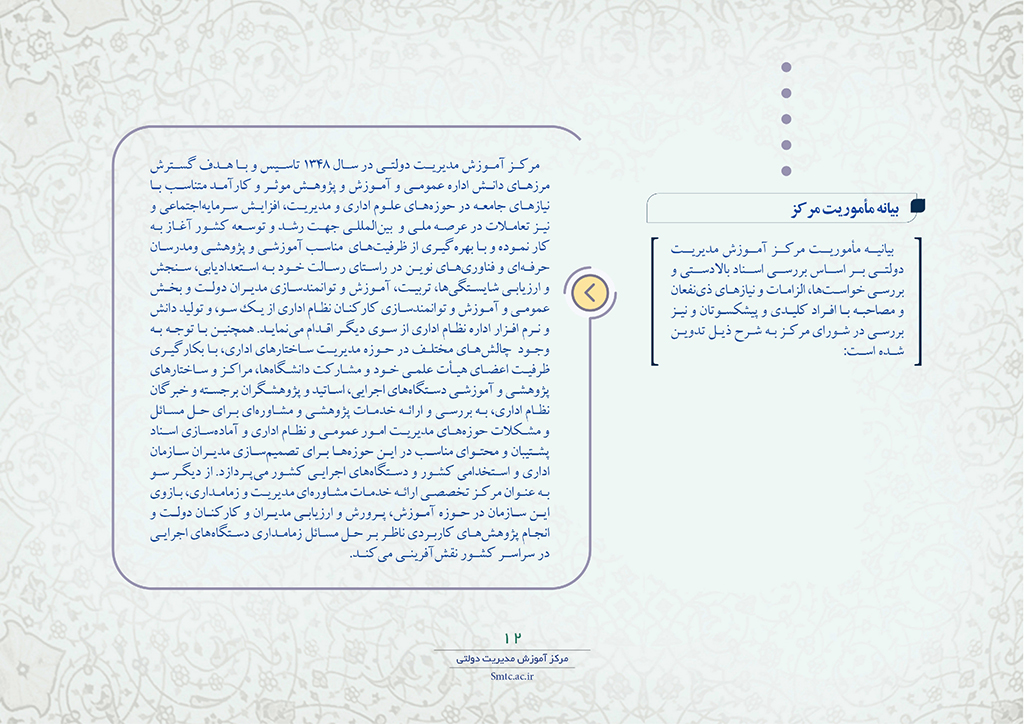 بیانه مأموریت مرکز
بیانیه مأموریت مرکز آموزش مدیریت
دولتی بر اساس بررسی اسناد بالادستی و
بررسی خواست‌ها، الزامات و نیازهای ذی‌نفعان
و مصاحبه با افراد کلیدی و پیشکسوتان و نیز
بررسی در شورای مرکز به شرح ذیل تدوین
شده است:
مرکز آموزش مدیریت دولتی در سال ۱۳۴۸ تاسیس و با هدف گسترش
مرزهای دانش اداره عمومی و آموزش و پژوهش موثر و کارآمد متناسب با
نیازهای جامعه در حوزه‌های علوم اداری و مدیریت، افزایش سرمایه‌اجتماعی و
نیز تعاملات در عرصه ملی و بین‌المللی جهت رشد و توسعه کشور آغاز به
کار نموده و با بهره گیری از ظرفیت‌های مناسب آموزشی و پژوهشی ومدرسان
حرفه‌ای و فناوری‌های نوین در راستای رسالت خود به استعدادیابی، سنجش
و ارزیابی شایستگی‌ها، تربیت، آموزش و توانمندسازی مدیران دولت و بخش
عمومی و آموزش و توانمندسازی کارکنان نظام اداری از یک سو، و تولید دانش
و نرم افزار اداره نظام اداری از سوی دیگر اقدام می‌نماید. همچنین با توجه به
وجود چالش‌های مختلف در حوزه مدیریت ساختارهای اداری، با بکارگیری
ظرفیت اعضای هیأت علمی خود و مشارکت دانشگاه‌ها، مراکز و ساختارهای
پژوهشی و آموزشی دستگاه‌های اجرایی، اساتید و پژوهشگران برجسته و خبرگان
نظام اداری، به بررسی و ارائه خدمات پژوهشی و مشاوره‌ای برای حل مسائل
و مشکلات حوزه‌های مدیریت امور عمومی و نظام اداری و آماده‌سازی اسناد
پشتیبان و محتوای مناسب در این حوزه‌ها برای تصمیم‌سازی مدیران سازمان
اداری و استخدامی کشور و دستگاه‌های اجرایی کشور می‌پردازد. از دیگر سو
به عنوان مرکز تخصصی ارائه خدمات مشاوره‌ای مدیریت و زمامداری، بازوی
این سازمان در حوزه آموزش، پرورش و ارزیابی مدیران و کارکنان دولت و
انجام پژوهش‌های کاربردی ناظر بر حل مسائل زمامداری دستگاه‌های اجرایی
در سراسر کشور نقش‌آفرینی می‌کند.
۱۲
مرکز آموزش مدیریت دولتی
Smtc.ac.ir